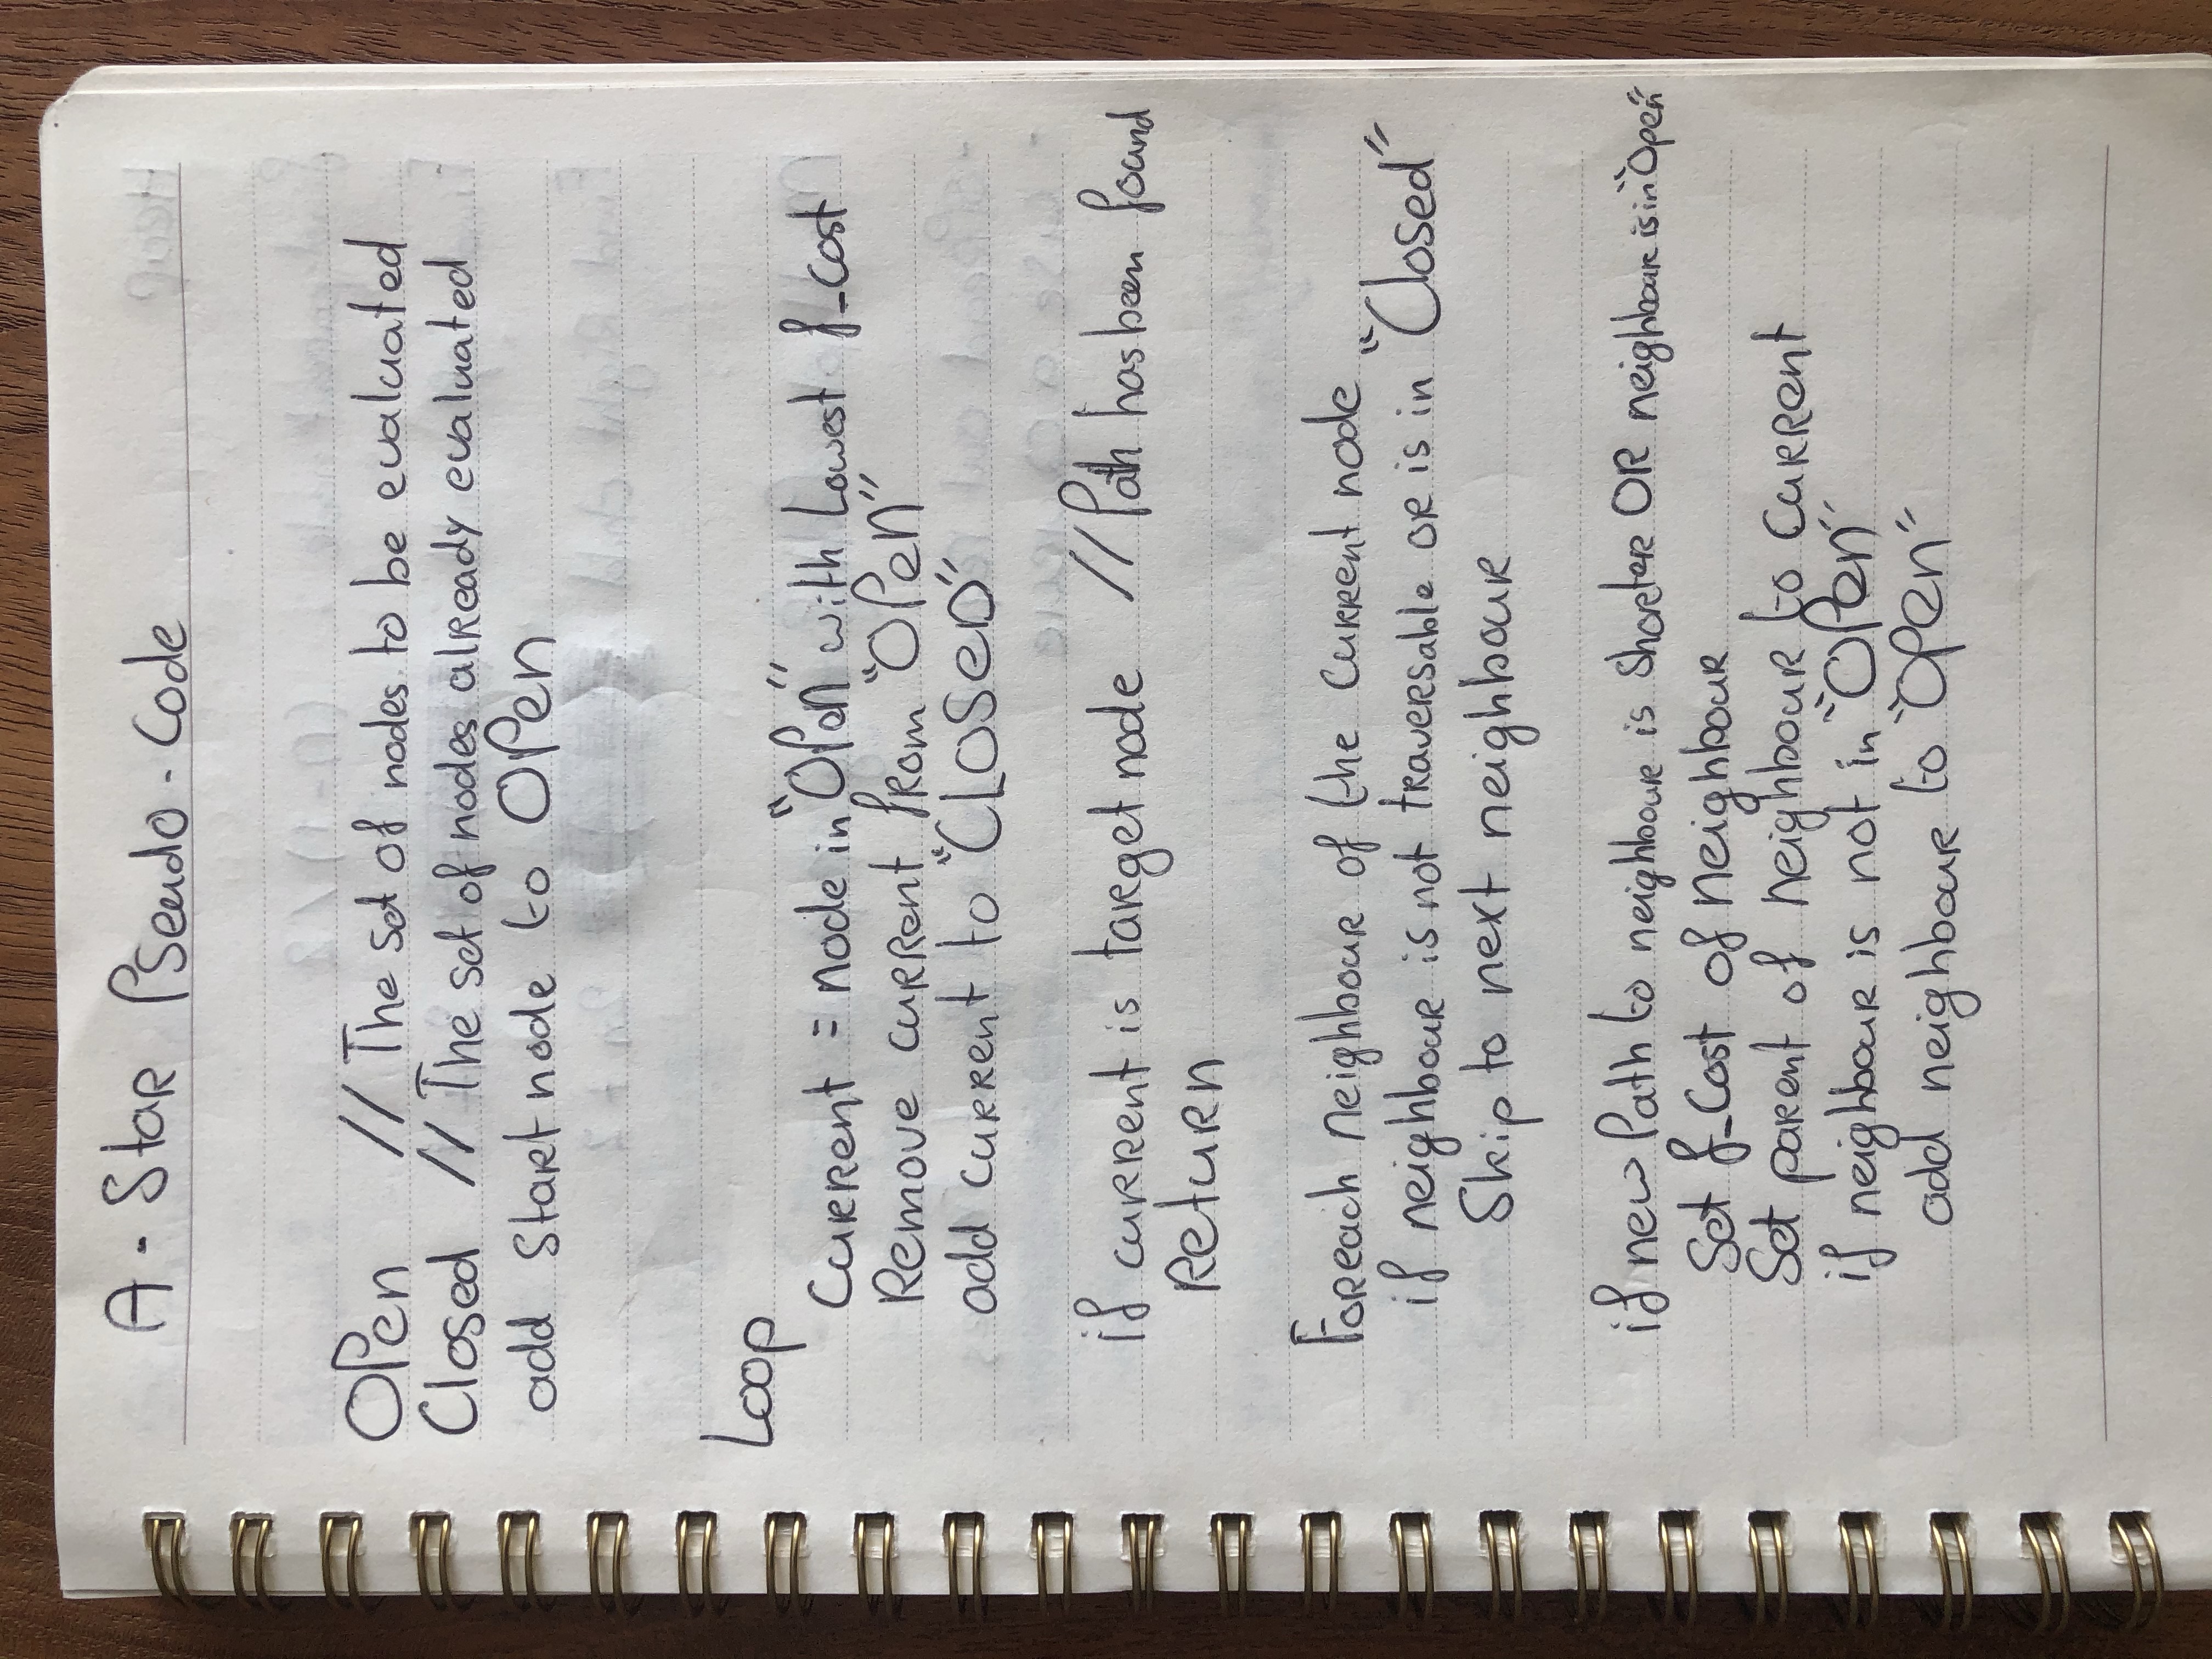 A - Star Pseudo - Code
Open // The set of nodes to be evaluated
Closed // The set of nodes already evaluated
add start node to Open
Loop
Current = node in "Open" with Lowest f_cost
Remove current from "Open"
add current to "CLOSED"
if current is target node // Path has been found
Return
Foreach neighbour of the current node
if neighbour is not traversable OR is in "Closed"
Skip to next neighbour
if new Path to neighbour is shorter OR neighbour is in "Open"
Set f_Cost of neighbour
Set parent of neighbour to current
if neighbour is not in "Open"
add neighbour to "Open"